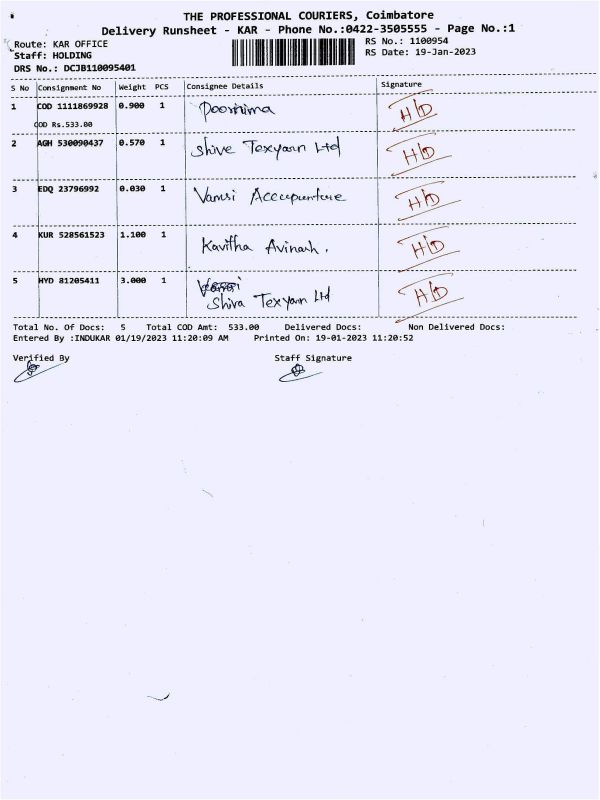 THE PROFESSIONAL COURIERS, Coimbatore
Delivery Runsheet - KAR - Phone No.:0422-3505555 - Page No.:1
Route: KAR OFFICE RS No.: 1100954
Staff: HOLDING RS Date: 19-Jan-2023
DRS No.: DCJB110095401
S No Consignment No Weight PCS Consignee Details Signature
1 COD 1111869928 0.900 1 Poornima H/D
COD Rs.533.00
2 AGH 530090437 0.570 1 Shive Texyarn Ltd H/D
3 EDQ 23796992 0.030 1 Vamsi Accupunture H/D
4 KUR 528561523 1.100 1 Kavitha Avinash. H/D
5 HYD 81205411 3.000 1 H/D
Shiva Texyarn Ltd
Total No. Of Docs: 5 Total COD Amt: 533.00 Delivered Docs: Non Delivered Docs:
Entered By :INDUKAR 01/19/2023 11:20:09 AM Printed On: 19-01-2023 11:20:52
Verified By Staff Signature